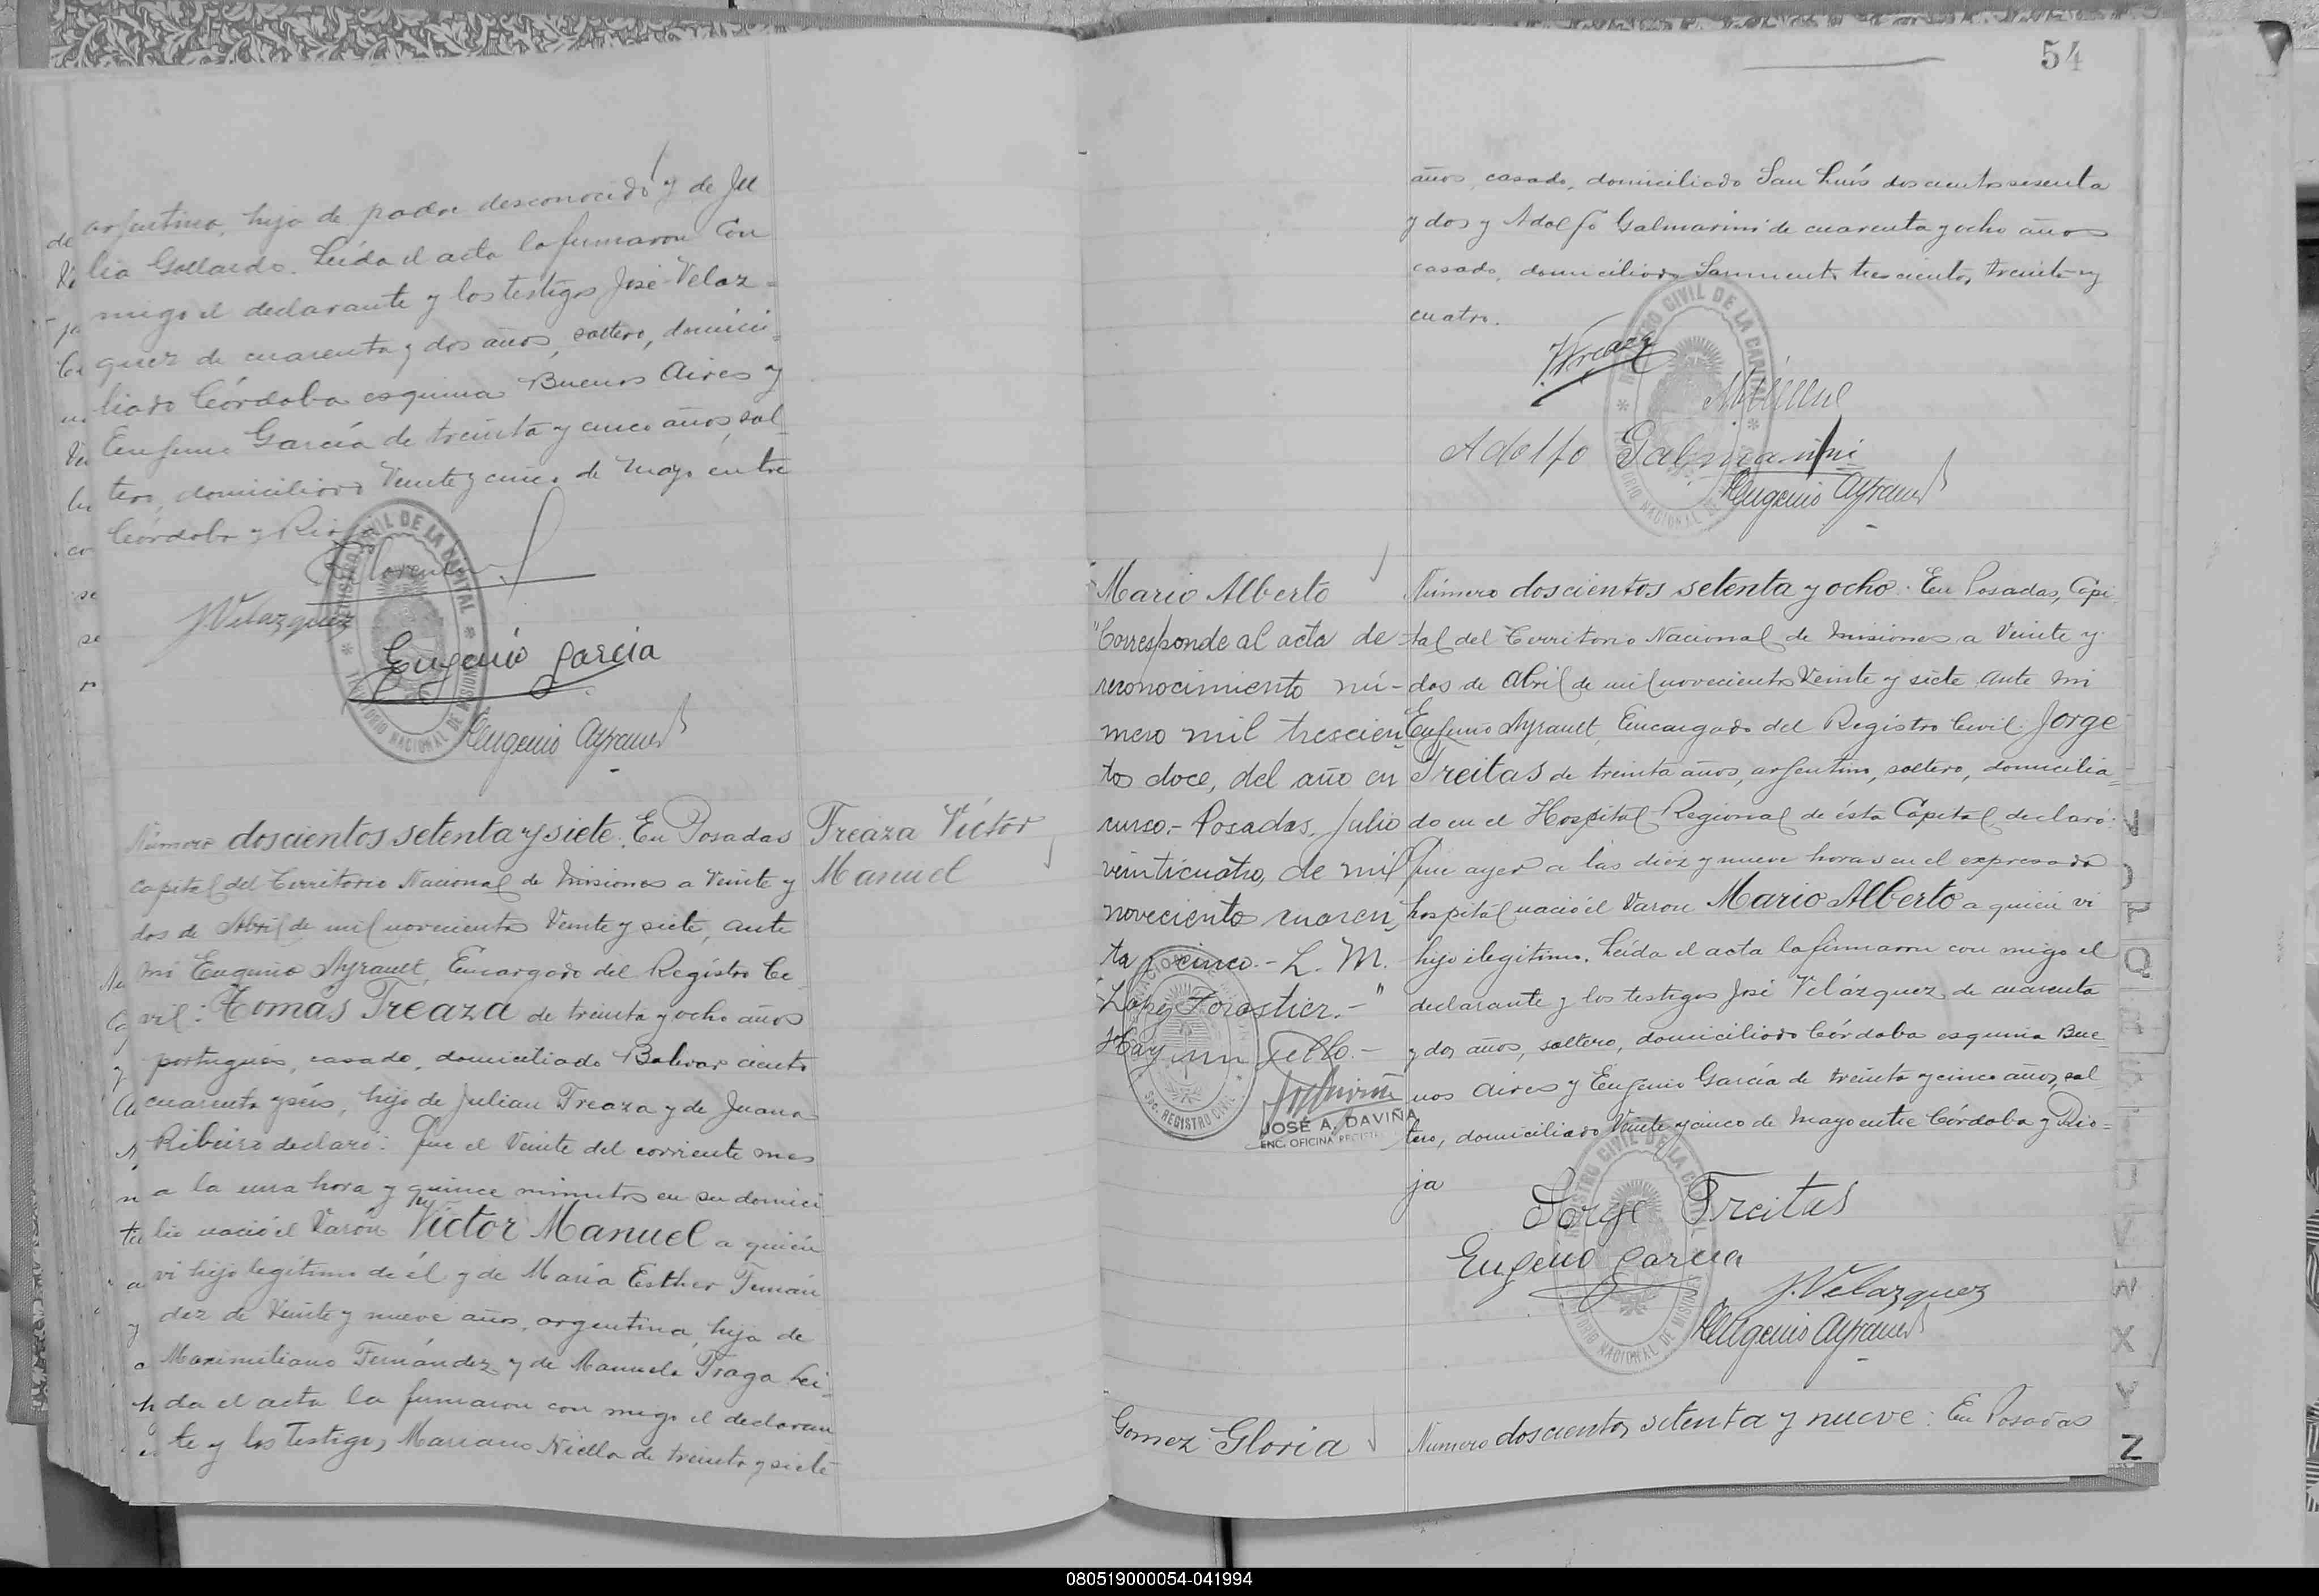 argentina, hija de padre desconocido y de Ju
lia Gallardo. Leída el acta la firmaron con
migo el declarante y los testigos José Velaz=
quez de cuarenta y dos años, soltero, domici=
liado Córdoba esquina Buenos Aires y
Eugenio García de treinta y cinco años, sol
tero, domiciliado Veinte y cinco de Mayo entre
Córdoba y Rioja
J Velazquez
Eugenio Garcia
Eugenio Ayrault
REGISTRO CIVIL DE LA CAPITAL
TERRITORIO NACIONAL DE MISIONES
Número doscientos setenta y siete. En Posadas
capital del Territorio Nacional de Misiones a Veinte y
dos de Abril de mil novecientos Veinte y siete, ante
mi Eugenio Ayrault, Encargado del Registro Ci
vil: Tomás Freaza de treinta y ocho años
portugués, casado, domiciliado Bolivar ciento
cuarenta y seis, hijo de Julian Freaza y de Juana
Ribeiro declaró: Que el Veinte del corriente mes
a la una hora y quince minutos en su domici
lio nació el Varón Víctor Manuel a quién
vi hijo legítimo de él y de María Esther Fernán
dez de Veinte y nueve años, argentina, hija de
Maximiliano Fernández y de Manuela Fraga. Leí=
da el acta la firmaron con migo el declaran
te y los Testigos Mariano Niella de treinta y siete
Freaza Víctor
Manuel
54
años, casado, domiciliado San Luís doscientos sesenta
y dos y Adolfo Galmarini de cuarenta y ocho años
casado, domiciliado Sarmiento trescientos treinta y
cuatro.
TFreaza
Adolfo Galmarini
Eugenio Ayrault
REGISTRO CIVIL DE LA CAPITAL
TERRITORIO NACIONAL DE MISIONES
Mario Alberto
"Corresponde al acta de
reconocimiento nú-
mero mil trescien
tos doce, del año en
curso.- Posadas, Julio
veinticuatro, de mil
novecientos cuaren
ta y cinco.- L. M.
Lopez Forastier.-"
Hay un sello.-
JOSÉ A. DAVIÑA
ENC. OFICINA
REGISTRO CIVIL
Número doscientos setenta y ocho. En Posadas, Capi
tal del Territorio Nacional de Misiones a Veinte y
dos de Abril de mil novecientos Veinte y siete ante mi
Eugenio Ayrault, Encargado del Registro Civil: Jorge
Freitas de treinta años, argentino, soltero, domicilia=
do en el Hospital Regional de ésta Capital declaró:
Que ayer a las diéz y nueve horas en el expresado
hospital nació el Varon Mario Alberto a quién vi
hijo ilegítimo. Leída el acta la firmaron con migo el
declarante y los testigos José Velázquez de cuarenta
y dos años, soltero, domiciliado Córdoba esquina Bue=
nos Aires y Eugenio García de treinta y cinco años, sol
tero, domiciliado Veinte y cinco de Mayo entre Córdoba y Rio=
ja
Jorge Freitas
Eugenio Garcia
J. Velazquez
Eugenio Ayrault
REGISTRO CIVIL DE LA CAPITAL
TERRITORIO NACIONAL DE MISIONES
Gomez Gloria
Número doscientos setenta y nueve: En Posadas
Q
W
X
Y
Z
080519000054-041994